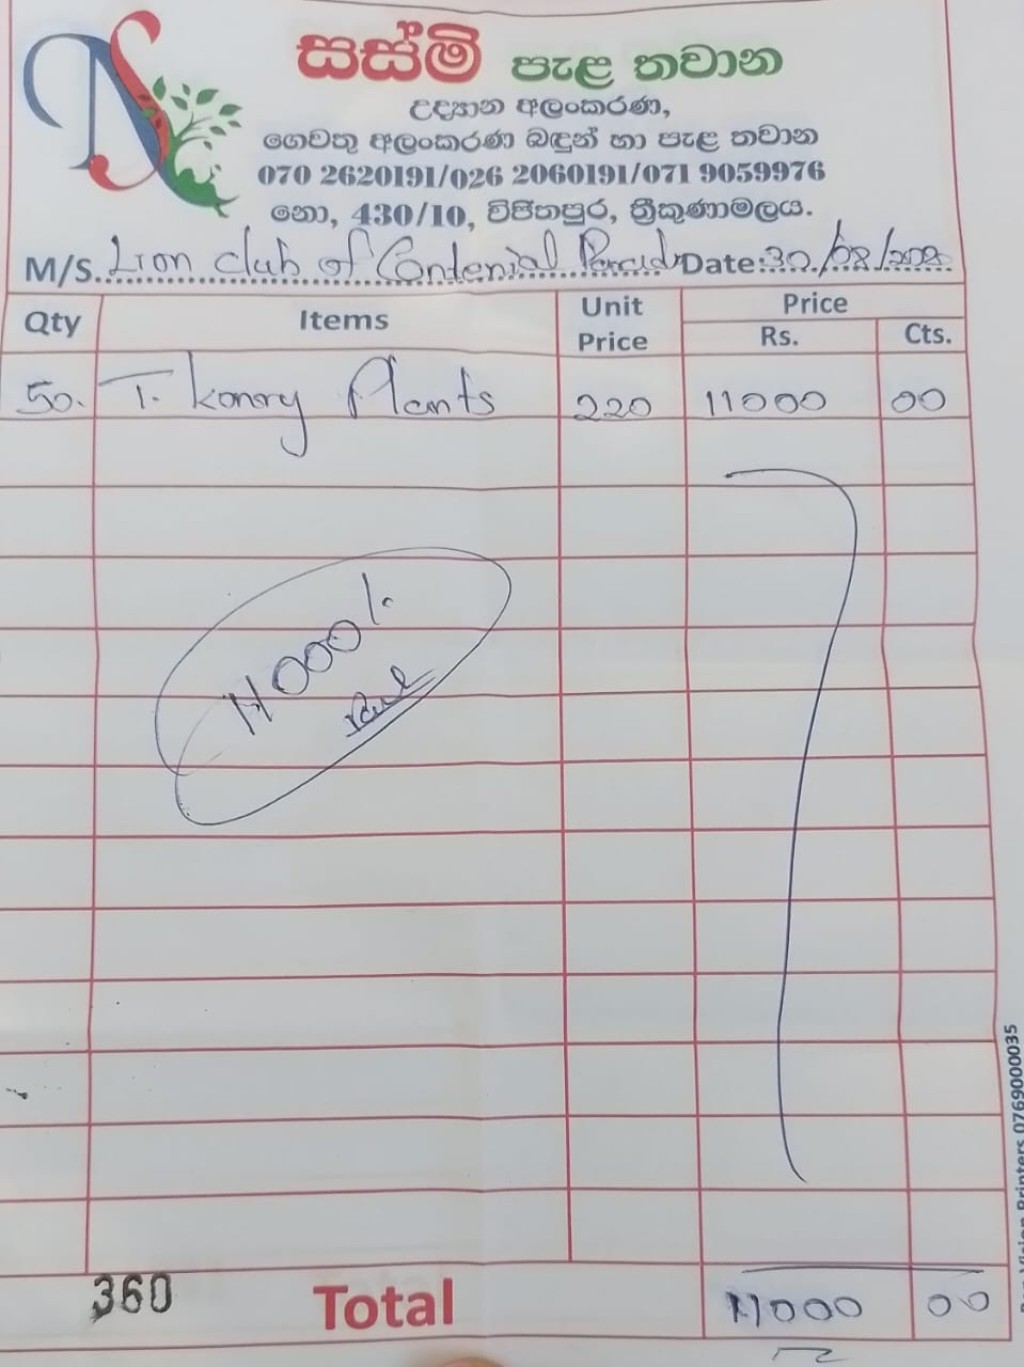 සස්මි පැළ තවාන
උද්‍යාන අලංකරණ,
ගෙවතු අලංකරණ බඳුන් හා පැළ තවාන
070 2620191/026 2060191/071 9059976
නො, 430/10, විජිතපුර, ත්‍රීකුණාමලය.
M/S. Lion club of Contenial Date: 30/08/
Qty Items Unit Price Price
Rs. Cts.
50. T. Plants 220 11000 00
11000/-
360 Total 11000 00
Vision Printers 0769000035